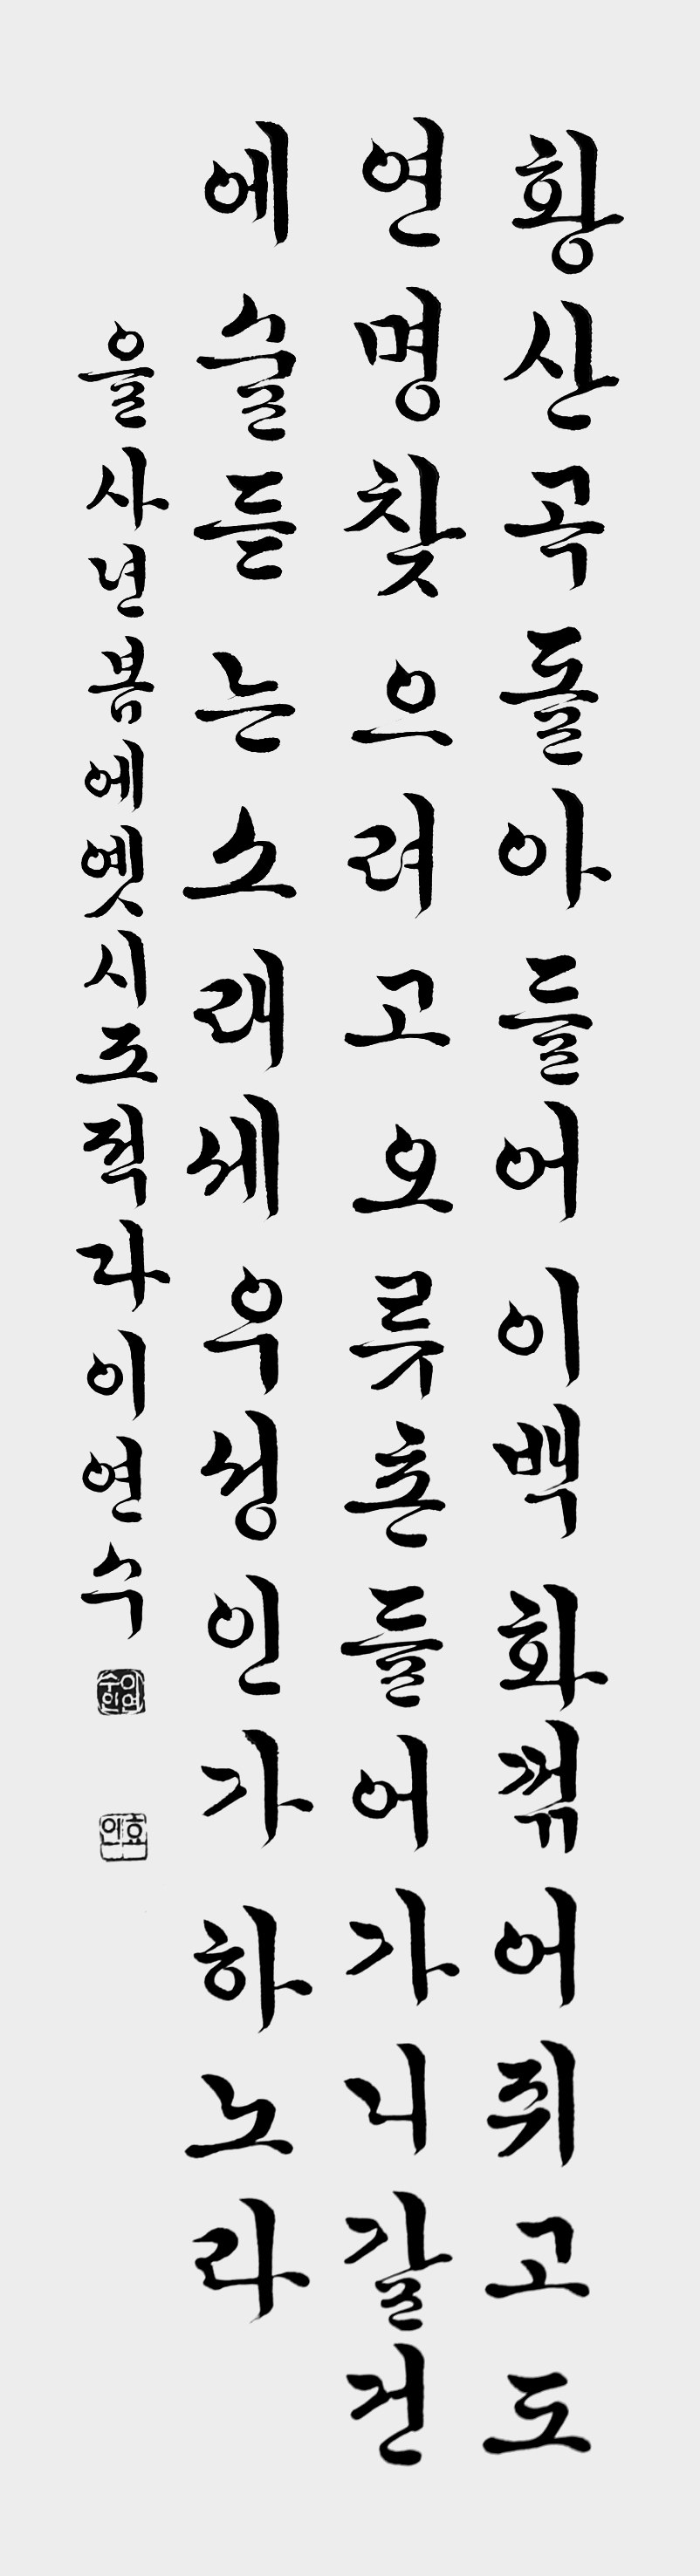 황산곡돌아들어이백화꺾어쥐고도
연명찾으려고오류촌들어가니갈건
에술듣는소래세우성인가하노라
을사년봄에옛시조적다이연수
이연수인